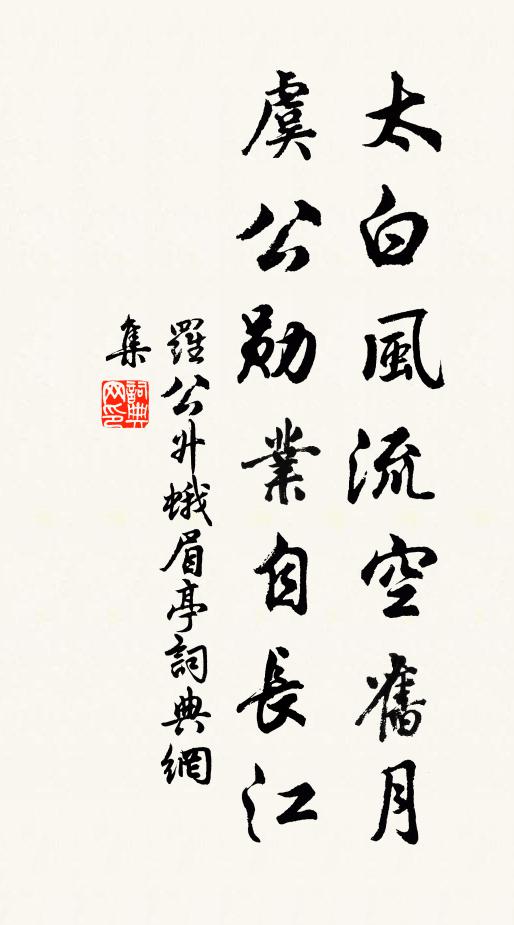 太白風流空舊月
虞公勛業自長江
羅公升蛾眉亭詞典網
集
詞典網印